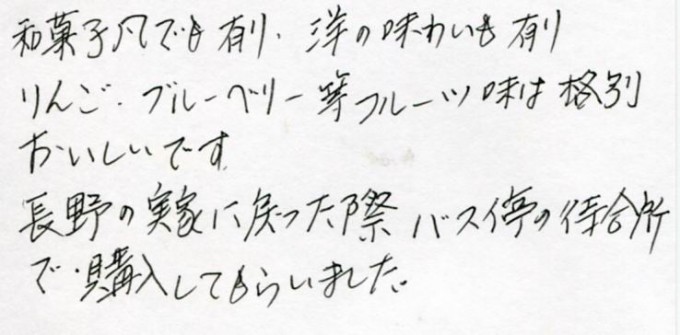 和菓子風でも有り、洋の味わいも有り
りんご、ブルーベリー等フルーツ味は格別
おいしいです
長野の実家に戻った際 バス停の待合所
で、購入してもらいました。